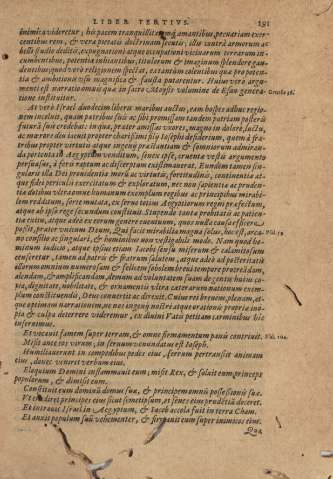 LIBER TERTIVS. 191
inimica videretur; his pacem tranquillitatemq́; amantibus, pecuariam exer-
centibus rem, & vera pietatis doctrinam secutis; illis contra armorum ac
belli studio deditis, expugnationi atque occupationi vicinarum terrarum in-
cumbentibus, potentia imbecillitatibus, titulorum & imaginum splendore gau-
dentibus;
tia & ambitione sua magnifica & fausta putarentur. Huius verò argu-
menti est narratio omnis quæ in sacro Moysis volumine de Esau genera- Genesis 36.
tione instituitur.
At verò Israel duodecim liberis maribus auctus, eam hospes adhuc regio-
nem incoluit, quam patribus suis ac sibi promissam tandem patriam posteris
futurā suis credebat. in qua, præter amissam vxorem, magno in dolore, luctu,
ac mœrore diu iacuit propter charissimi filij Iosephi desiderium, quem à fra-
tribus propter virtutis atque ingenij præstantiam & somniorum admiran-
da portenta in Aegyptum venditum, senex ipse, cruenta vestis argumento
persuasus, à feris raptum ac discerptum existimauerat. Eundem tamen sin-
gularis illa Dei prouidentia morū ac virtutis, fortitudinis, continentiæ at-
que fidei periculis exercitatum & exploratum, nec non sapientia ac pruden-
tiæ dotibus vltra omne humanum exemplum regibus ac principibus mirabi-
lem redditum, sorte mutata, ex seruo totius Aegyptiorum regni præfectum,
atque ab ipso rege secundum constituit.
posit, præter vnicum Deum, Qui facit mirabilia magna solus, hoc est, arca- Psal. 71.
no consilio ac singulari, & hominibus non vestigabili modo.
micum addicit, atque ipsius etiam Iacobi sensu miserum & calamitosum
censeretur, tamen ad patris & fratrum salutem, atque adeò ad posteritatis
illorum omnium numerosam & felicem sobolem breui tempore protrahendam,
alendam, & amplificandam,
pia, dignitate, nobilitate, & ornamentis vltra cæterarum nationum exem-
plum constituendis, Deus conuertit ac direxit. Cuius rei breuem, plenam, at-
que optimam narrationem, ne nos ingenij nostri atque orationis propriæ ino-
pia & culpa deterrere videremur, ex diuini Vatis petitam carminibus hic
inseruimus.
Et vocauit famem super terram, & omne firmamentum panis contriuit. Psal. 104.
Misit ante eos virum, in seruum venundatus est Ioseph.
Humiliauerunt in compedibus pedes eius, ferrum pertransijt animam
eius, donec veniret verbum eius.
Eloquium Domini inflammauit eum; misit Rex, & soluit eum princeps
populorum, & dimisit eum.
Constituit eum dominū domus suæ, & principem omnis possessionis suæ.
Vt erudiret principes eius sicut semetipsum, et senes eius prudentiā doceret.
Et intrauit Israel in Aegyptum, & Iacob accola fuit in terra Cham.
Et auxit populum suū vehementer, & firmauit eum super inimicos eius.